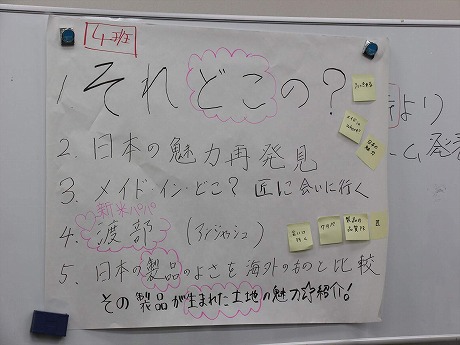 4班
1 それどこの?
2. 日本の魅力再発見
3. メイド・イン・どこ? 匠に会いに行く
新米パパ
4. 渡部 (アンジャッシュ)
会いに行く
製品の品質性
匠
5. 日本の製品のよさを海外のものと比較
その製品が生まれた土地の魅力を紹介!
より
ム発表